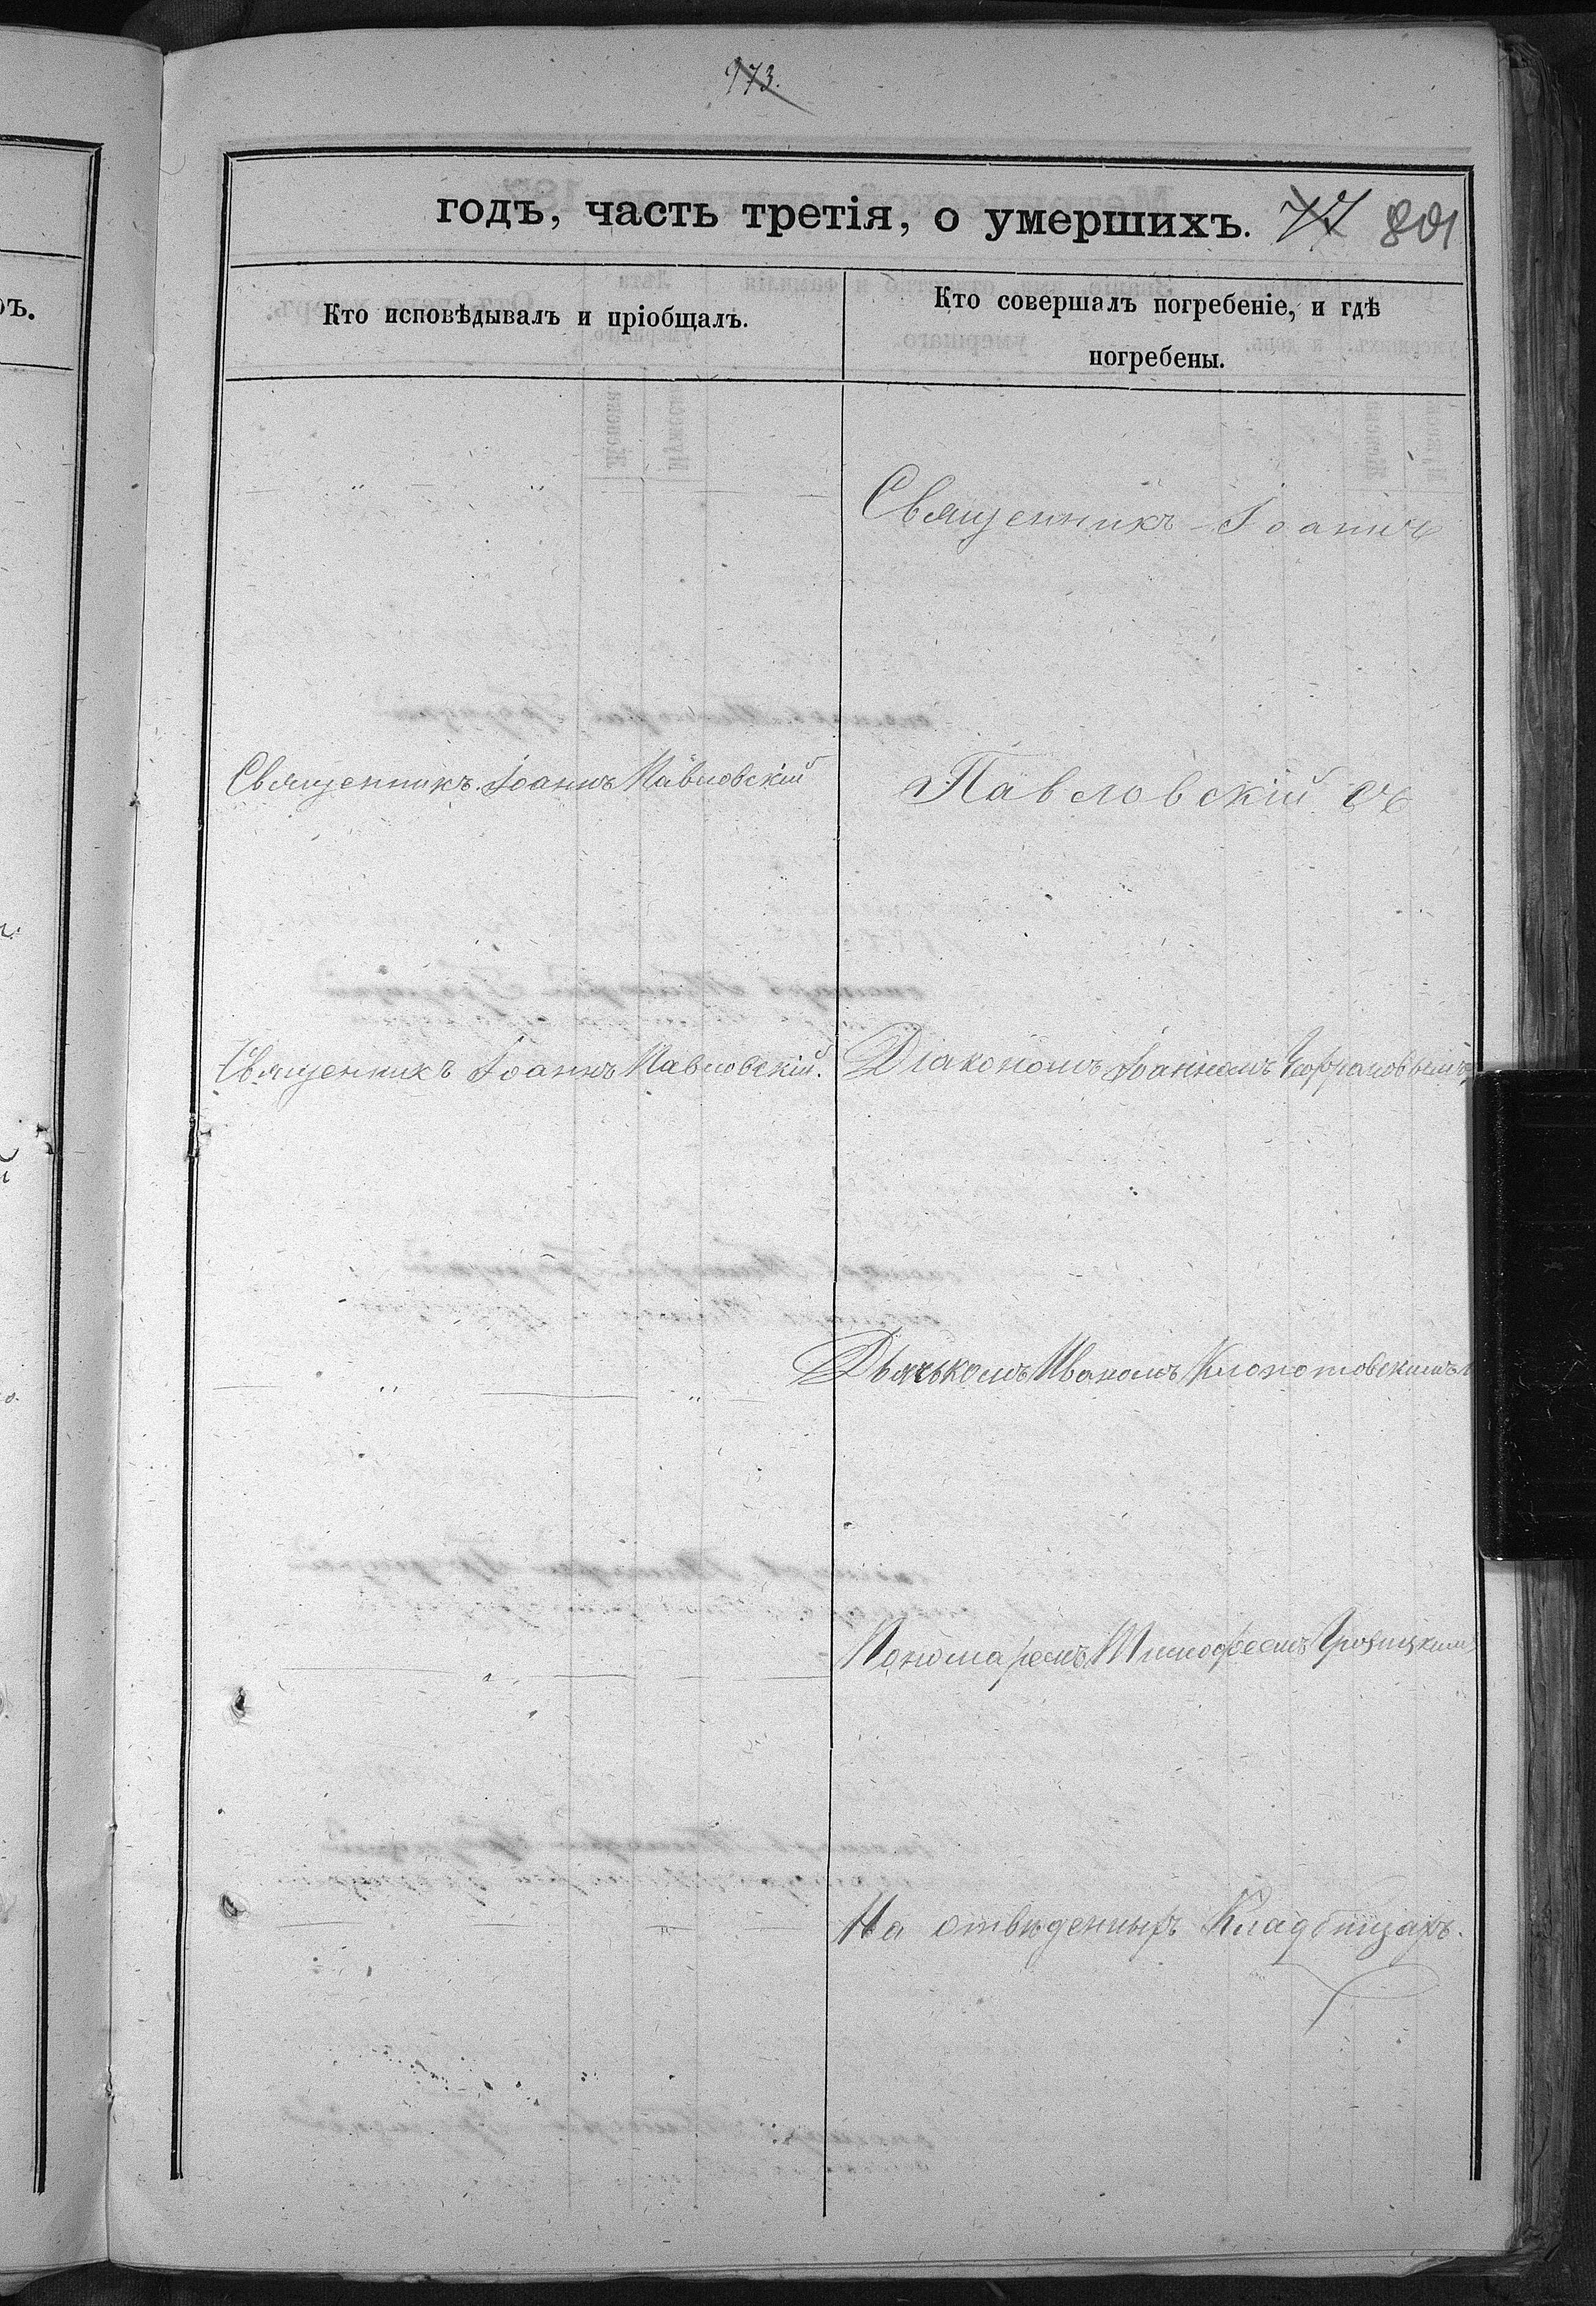 973.
годъ, часть третія, о умершихъ. 77 801
Кто исповѣдывалъ и пріобщалъ.
Кто совершалъ погребеніе, и гдѣ
погребены.
Священникъ Іоаннъ
Священникъ Іоаннъ Павловскій
Павловскій съ
Священникъ Іоаннъ Павловскій.
Діакономъ Іоанномъ
Дьячькомъ Иваномъ Клопотовскимъ
Пономаремъ Тимофеемъ
На отвѣденныхъ Кладбищахъ.
ръ.